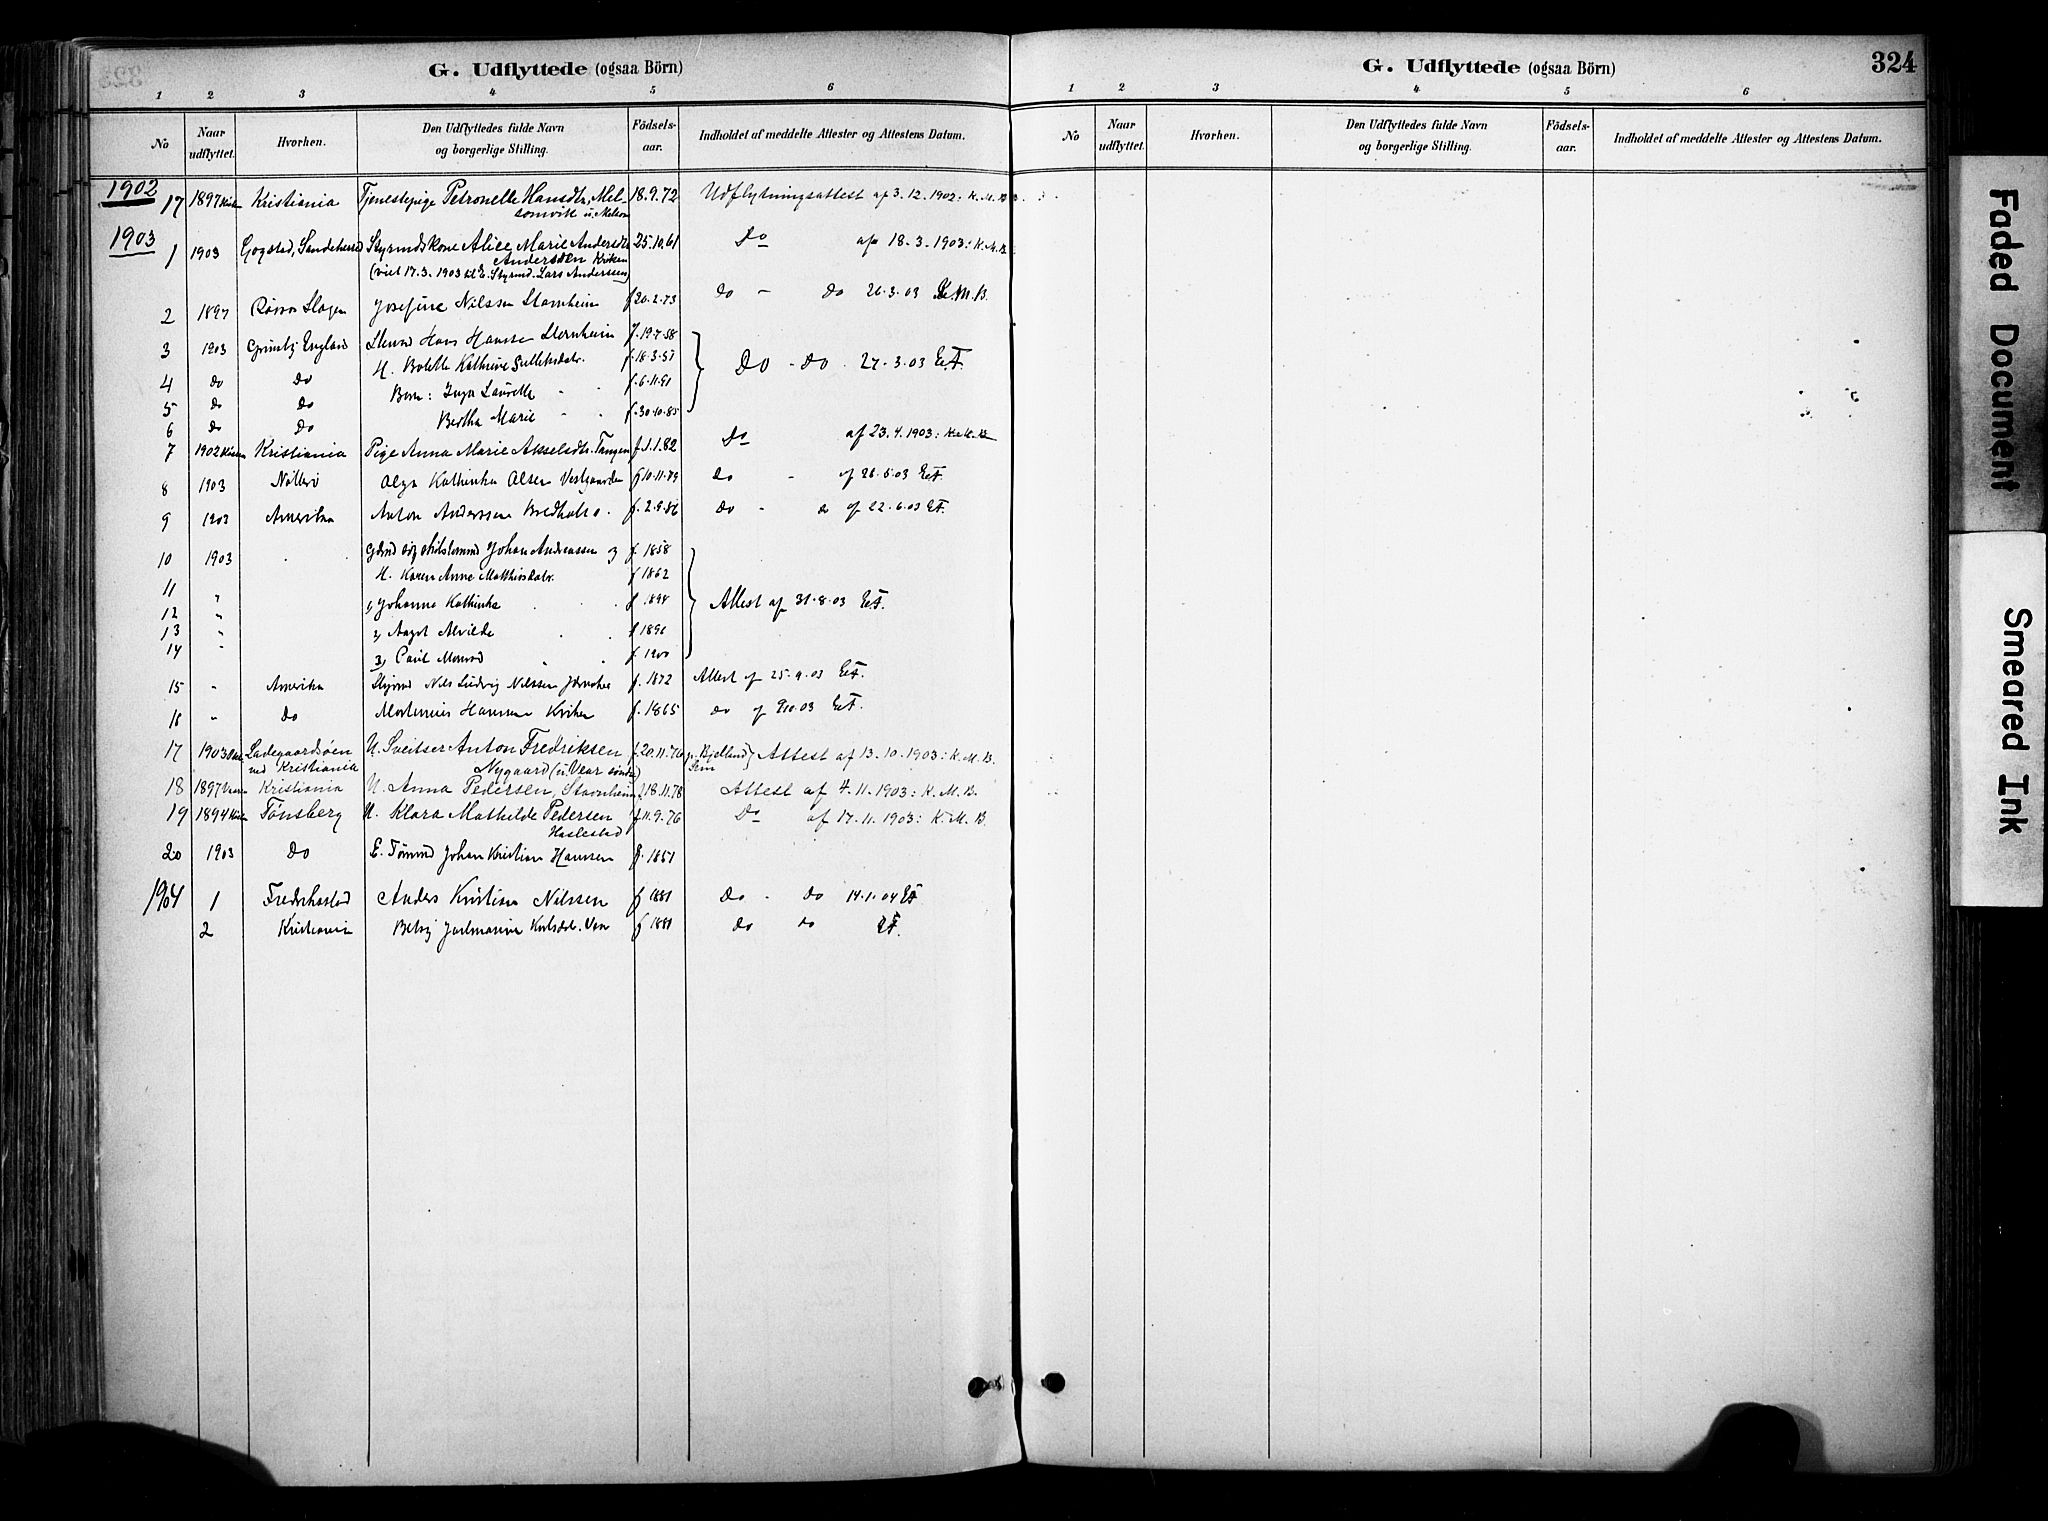 G. Udflyttede (ogsaa Börn)
1 2 3 4 5 6
No Naar udflyttet. Hvorhen. Den Udflyttedes fulde Navn og borgerlige Stilling. Födsels-aar. Indholdet af meddelte Attester og Attestens Datum.
1902
17 1897 Kristiania Tjenestepige Petronelle Hansdtr, Mel- 18.9.72 Udflytningsattest af 3.12.1902: K.M.B.
somvik
1903
1 1903 Gogstad, Sandeherred Styrmdskone Alice Marie Andersdtr 25.10.61 Do af 18.3.1903: K.M.B.
Andersden Kriken
(viet 17.3.1903 til E. Styrmd. Lars Anderssen)
2 1897 Slagen Josefine Nilssen Stamheim f 20.2.73 do - do 26.3.03 K.M.B.
3 1903 Grimsby England Hans Hansen f. 19.7.58
H. Bolette Kathrine f. 18.3.57 Do - Do. 27.3.03
4 do Do Børn: Inga Laurette f. 6.11.91
5 do Do Bertha Marie f. 30.10.85
6 do Do
7 1902 Kristiania Pige Anna Marie Akselsdtr. Tangen f. 1.1.82 Do af 23.4.1903: K.M.B.
8 1903 Nøtterø Olga Kathinka Olsen Vestgaarden f 10.11.79 do - af 26.5.03
9 1903 Amerika Anton Anderssen f. 2.9.86 do - do af 22.6.03
10 1903 Johan Andreassen og f. 1858
11 " H. Karen Anne Matthisdatr. f 1862
12 " 1, Johanne Kathinka f. 1894 Attest af 31.8.03
13 " 2, Aagot Alvilde f 1896
14 " 3, Paul f. 1900
15 " Amerika Nils Ludvig Nilssen f. 1872 Attest af 25.9.03
16 " Do Hansen Kriken f. 1865 do af 9.10.03
17 1903 Ladegaardsøen U. Sveitser Anton Fredriksen, f 20.11.76 Bjelland Attest af 13.10.1903: K.M.B.
ved Kristiania Nygaard Sem
18 1897 Kristiania U. Anna Pedersen, Stamheim f. 18.11.78 Attest af 4.11.1903: K.M.B.
19 1894 Tønsberg U. Klara Mathilde Pedersen f 11.9.76 Do af 17.11.1903: K.M.B.
Haslestad
20 1903 Do E. Johan Kristian Hansen f. 1851
1904 1 Anders Kristian Nilssen f 1881 Do - Do 14.1.04
2 Kristiania f 1881 do do
G. Udflyttede (ogsaa Börn) 324
1 2 3 4 5 6
No Naar udflyttet. Hvorhen. Den Udflyttedes fulde Navn og borgerlige Stilling. Födsels-aar. Indholdet af meddelte Attester og Attestens Datum.
Faded Document
Smeared Ink